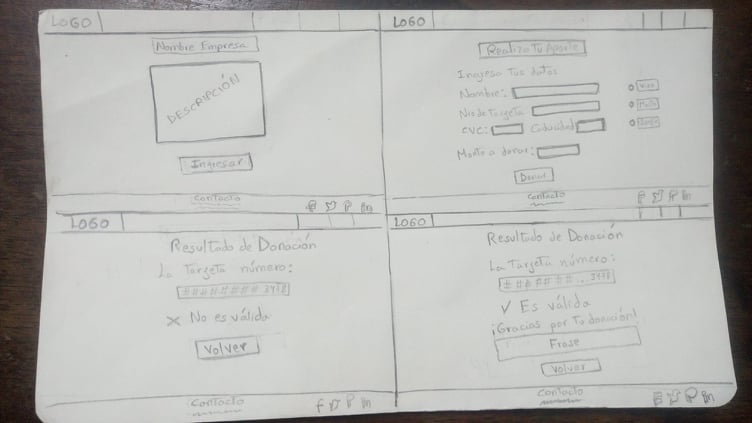 LOGO
Nombre Empresa
DESCRIPCIÓN
Ingresar
Contacto
LOGO
Realiza Tu Aporte
Ingresa Tus datos
Nombre:
Nro de Targeta
Visa
CVC: Caducidad
Monto a donar:
Donar
Contacto
LOGO
Resultado de Donación
La Targeta número:
######## 3478
No es válida
Volver
Contacto
LOGO
Resultado de Donación
La Targeta número:
######... 3478
Es válida
¡Gracias por Tu donación!
Frase
Volver
Contacto